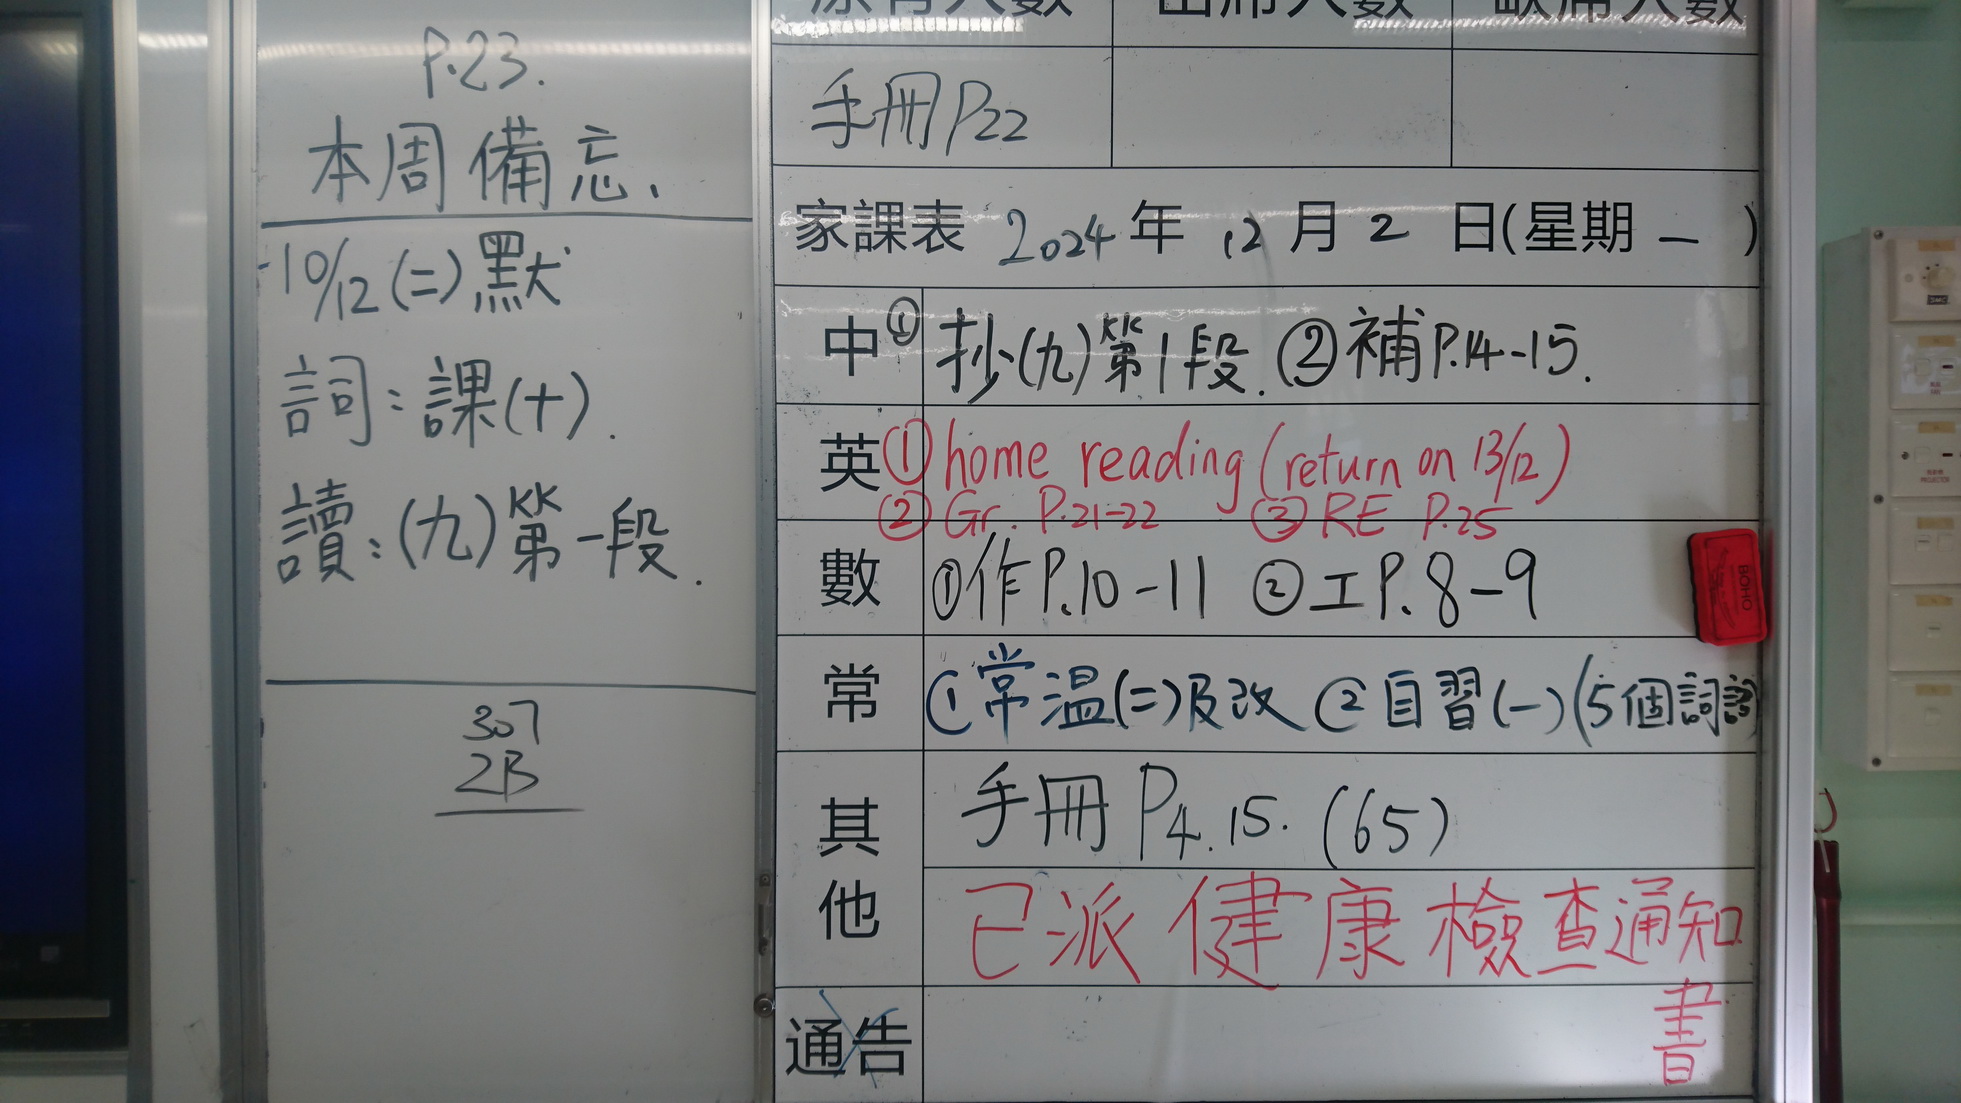 P.23.
本周備忘.
10/12 (二) 默
詞：課(十).
讀：(九)第一段.
307
2B
原有人數 出席人數 缺席人數
手冊P22
家課表 2024年 12月 2 日(星期 一 )
中 ① 抄(九)第1段. ②補P.14-15.
英 ① home reading (return on 13/12)
② Gr. P.21-22 ③ RE P.25
數 ①作P.10-11 ②工P.8-9
常 ①常温(二)及改 ②自習(一)(5個詞語)
其他 手冊 P4.15. (65)
已派健康檢查通知
書
通告
BOHO